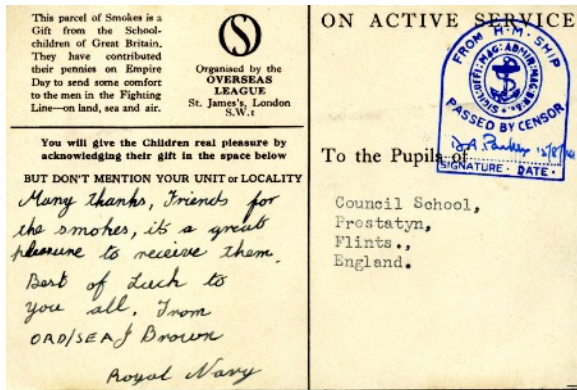 This parcel of Smokes is a
Gift from the School-
children of Great Britain.
They have contributed
their pennies on Empire
Day to send some comfort
to the men in the Fighting
Line—on land, sea and air.
OS
Organised by the
OVERSEAS
LEAGUE
St. James's, London
S.W.1
You will give the Children real pleasure by
acknowledging their gift in the space below
BUT DON'T MENTION YOUR UNIT or LOCALITY
Many thanks, Friends for
the smokes, it's a great
pleasure to receive them.
Best of Luck to
you all. From
ORD/SEA J Brown
Royal Navy
ON ACTIVE SERVICE
FROM H.M. SHIP
PASSED BY CENSOR
SIGNATURE · DATE ·
To the Pupils of
Council School,
Prestatyn,
Flints.,
England.